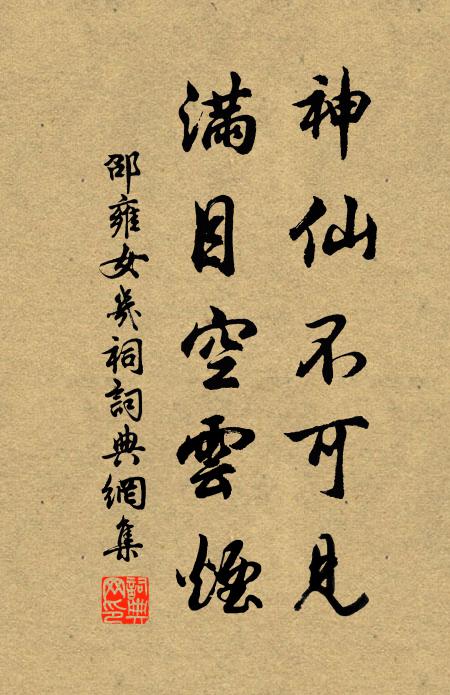 神仙不可見
滿目空雲煙
邵雍女几祠詞典網集
詞典網印